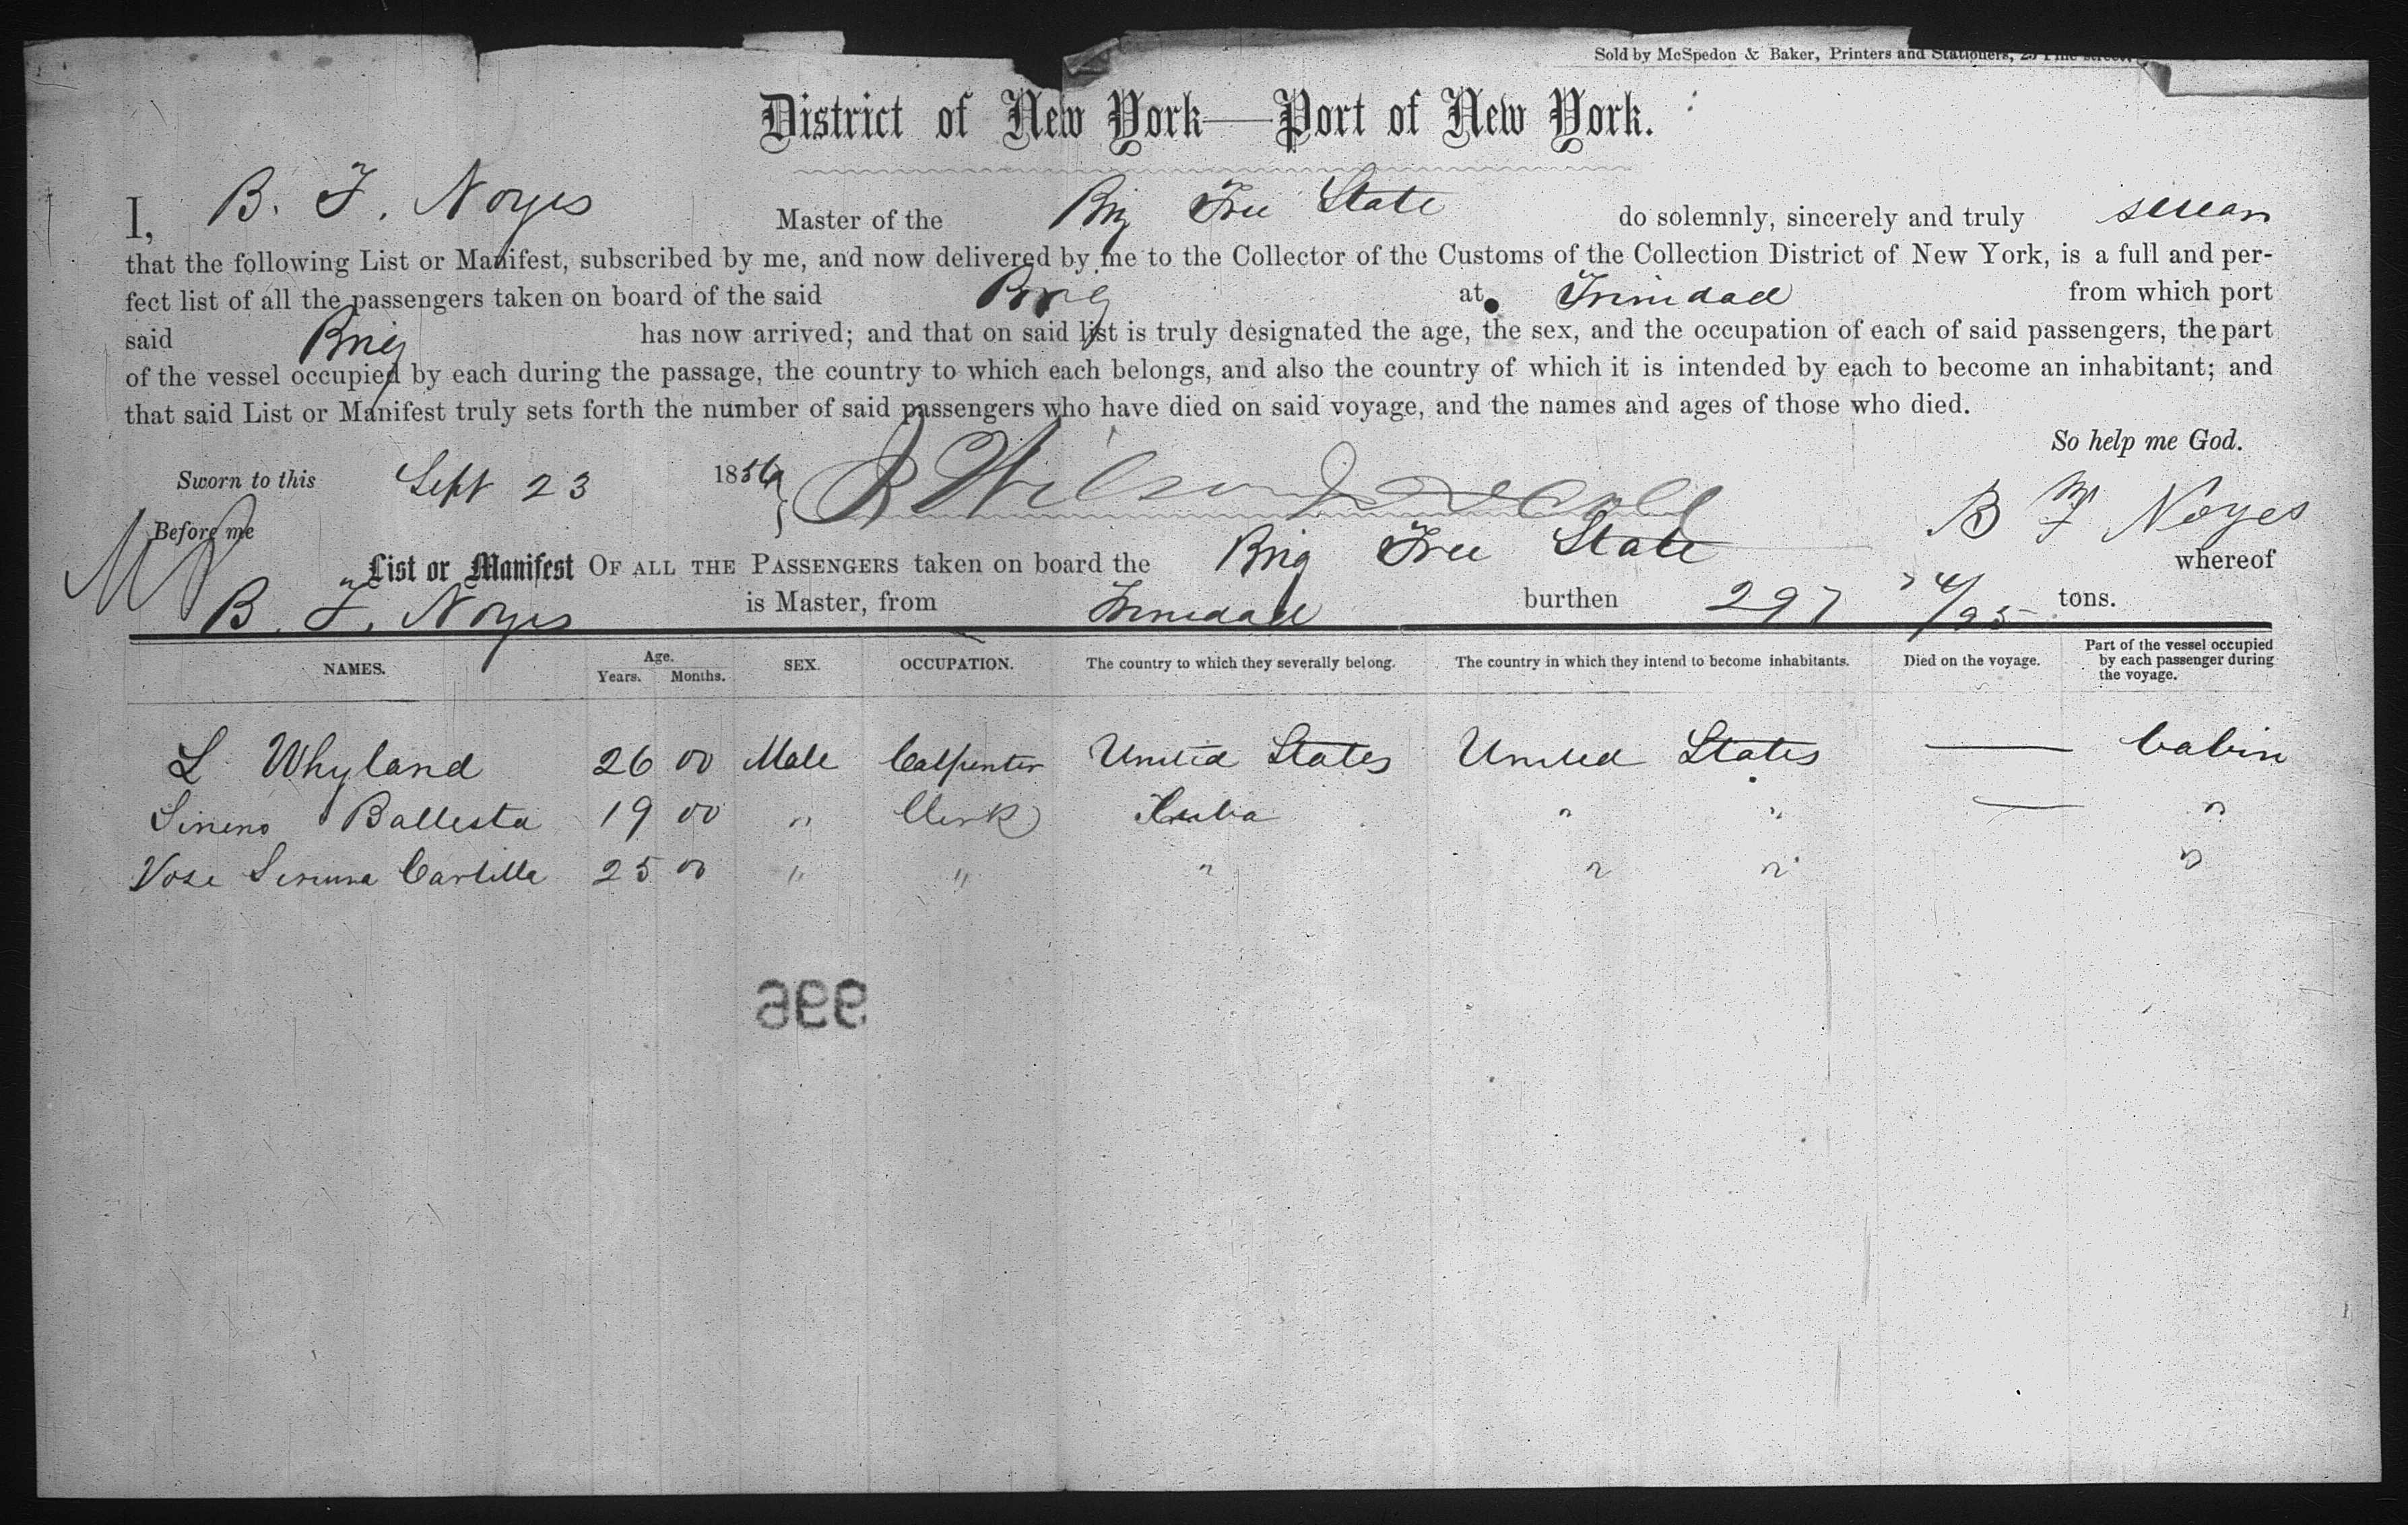 Sold by McSpedon & Baker, Printers and Stationers, 25 Pine street.
District of New York—Port of New York.
I, B. F. Noyes Master of the Brig Free State do solemnly, sincerely and truly swear
that the following List or Manifest, subscribed by me, and now delivered by me to the Collector of the Customs of the Collection District of New York, is a full and per-
fect list of all the passengers taken on board of the said Brig at Trinidad from which port
said Brig has now arrived; and that on said list is truly designated the age, the sex, and the occupation of each of said passengers, the part
of the vessel occupied by each during the passage, the country to which each belongs, and also the country of which it is intended by each to become an inhabitant; and
that said List or Manifest truly sets forth the number of said passengers who have died on said voyage, and the names and ages of those who died.
So help me God.
Sworn to this Sept 23 1856
Before me
B F Noyes
List or Manifest OF ALL THE PASSENGERS taken on board the Brig Free State whereof
B. F. Noyes is Master, from Trinidad burthen 297 /95 tons.
NAMES. Age. Years. Months. SEX. OCCUPATION. The country to which they severally belong. The country in which they intend to become inhabitants. Died on the voyage. Part of the vessel occupied by each passenger during the voyage.
L Whyland 26 00 Male Carpenter United States United States — Cabin
Ballesta 19 00 " Clerk Cuba " " — "
25 00 " " " " " "
996